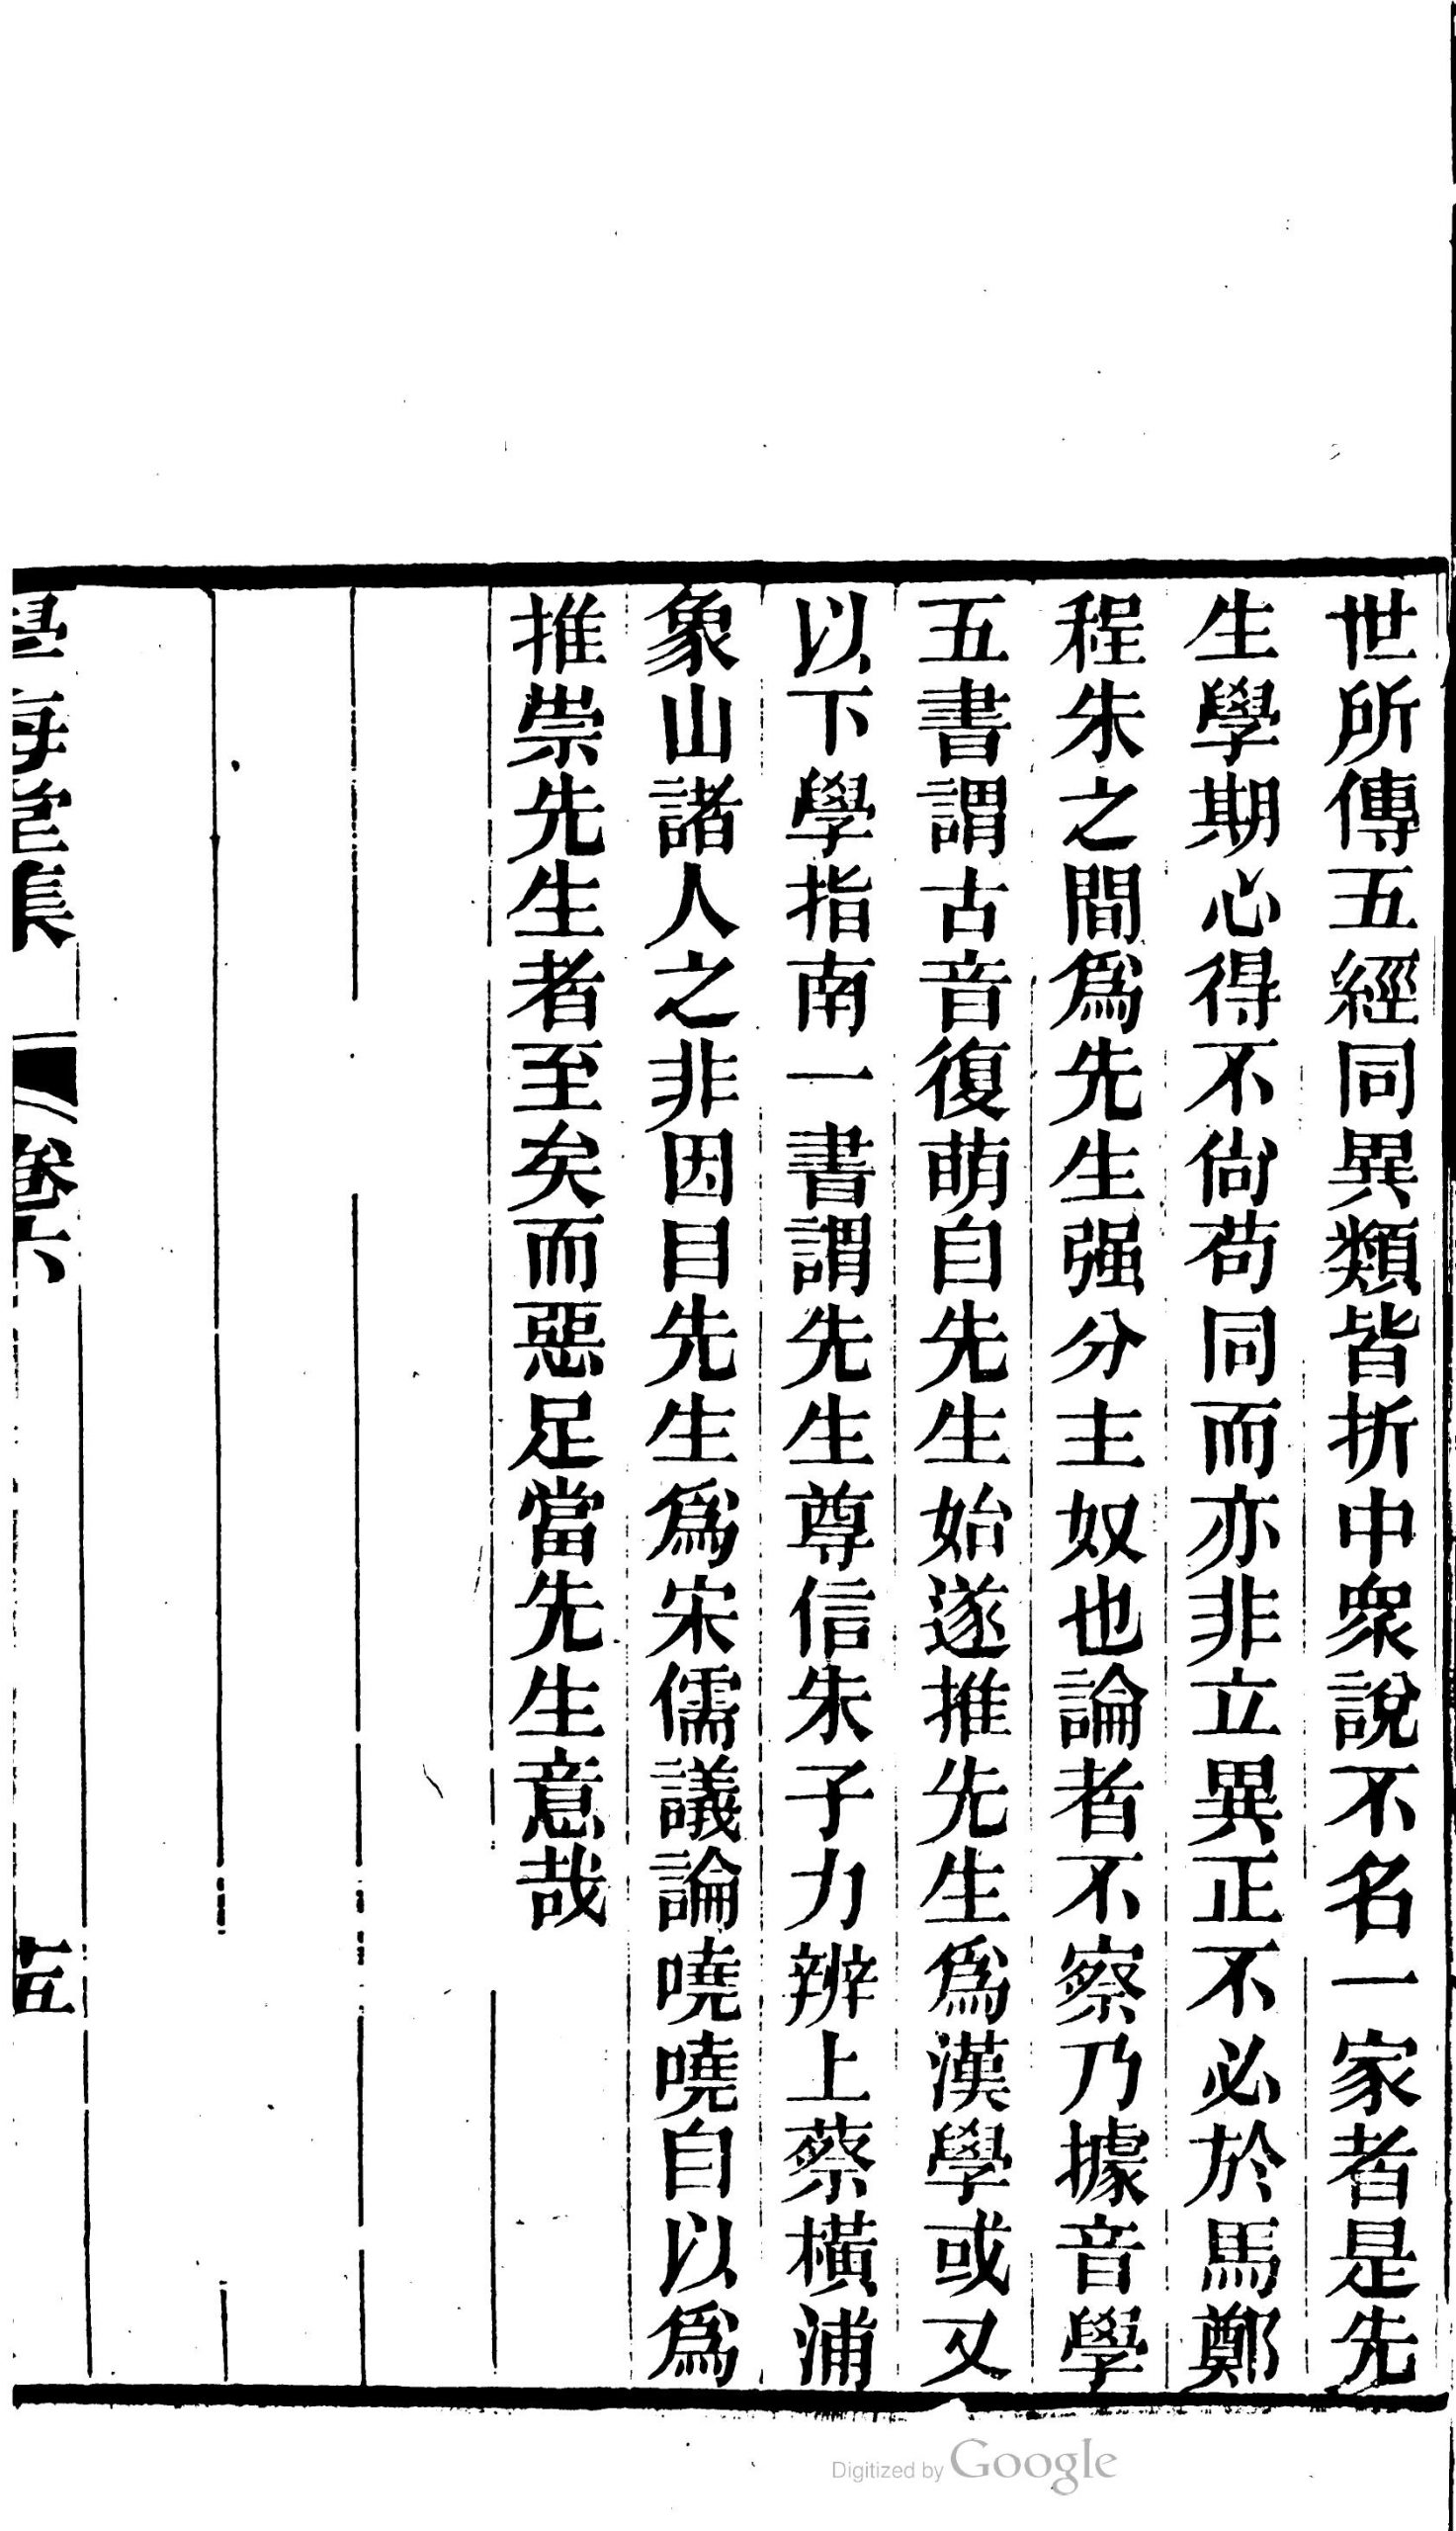 世所傳五經同異類皆折中衆說不名一家者是先
生學期心得不尙苟同而亦非立異正不必於馬鄭
程朱之間爲先生强分主奴也論者不察乃據音學
五書謂古音復萌自先生始遂推先生爲漢學或又
以下學指南一書謂先生尊信朱子力辨上蔡橫浦
象山諸人之非因目先生爲宋儒議論嘵嘵自以爲
推崇先生者至矣而惡足當先生意哉
學海堂集 卷六 十五
Digitized by Google